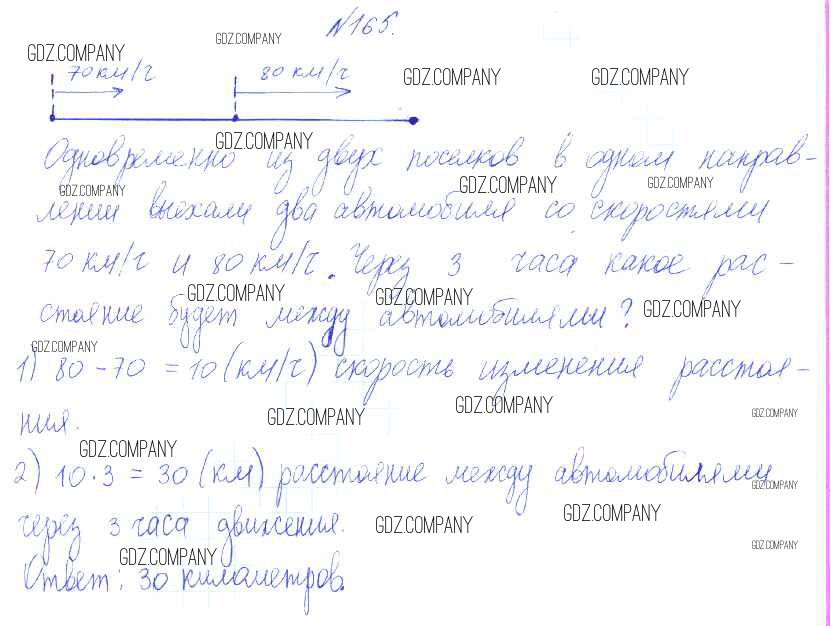 №165.
GDZ.COMPANY
GDZ.COMPANY
70 км/ч 80 км/ч
GDZ.COMPANY GDZ.COMPANY
GDZ.COMPANY
Одновременно из двух поселков в одном направ-
GDZ.COMPANY GDZ.COMPANY GDZ.COMPANY
лении выехали два автомобиля со скоростями
70 км/ч и 80 км/ч. Через 3 часа какое рас-
GDZ.COMPANY GDZ.COMPANY GDZ.COMPANY
стояние будет между автомобилями?
GDZ.COMPANY
1) 80 - 70 = 10 (км/ч) скорость изменения расстоя-
GDZ.COMPANY GDZ.COMPANY GDZ.COMPANY
ния.
GDZ.COMPANY
2) 10 · 3 = 30 (км) расстояние между автомобилями
GDZ.COMPANY
через 3 часа движения.
GDZ.COMPANY GDZ.COMPANY
GDZ.COMPANY GDZ.COMPANY
Ответ: 30 километров.